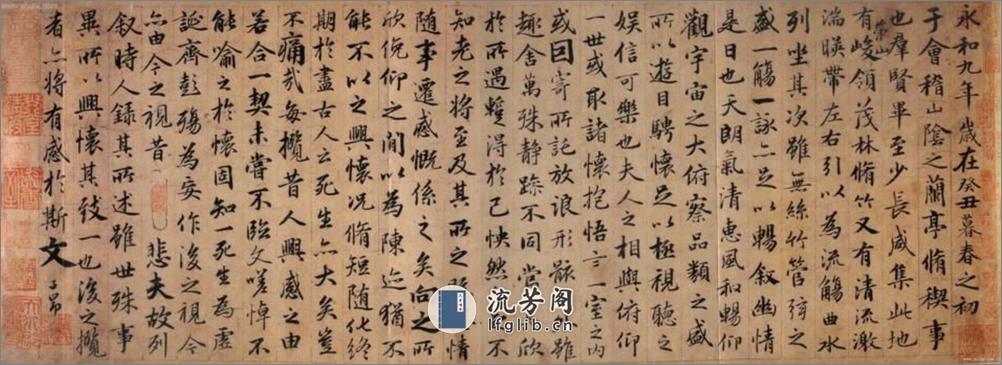 永和九年歲在癸丑暮春之初
于會稽山陰之蘭亭脩禊事
也羣賢畢至少長咸集此地
有崇山峻領茂林脩竹又有清流激
湍暎帶左右引以為流觴曲水
列坐其次雖無絲竹管弦之
盛一觴一詠亦足以暢叙幽情
是日也天朗氣清惠風和暢仰
觀宇宙之大俯察品類之盛
所以遊目騁懷足以極視聽之
娛信可樂也夫人之相與俯仰
一世或取諸懷抱悟言一室之內
或因寄所託放浪形骸雖
趣舍萬殊靜躁不同當欣
於所遇蹔得於己怏然不
知老之將至及其所之情
隨事遷感慨係之矣向之所
欣俛仰之閒以為陳迹猶不
能不以之興懷況脩短隨化終
期於盡古人云死生亦大矣豈
不痛哉每攬昔人興感之由
若合一契未嘗不臨文嗟悼不
能喻之於懷固知一死生為虛
誕齊彭殤為妄作後之視今
亦由今之視昔悲夫故列
叙時人錄其所述雖世殊事
異所以興懷其致一也後之攬
者亦將有感於斯文 子昂
流芳阁
lfglib.cn